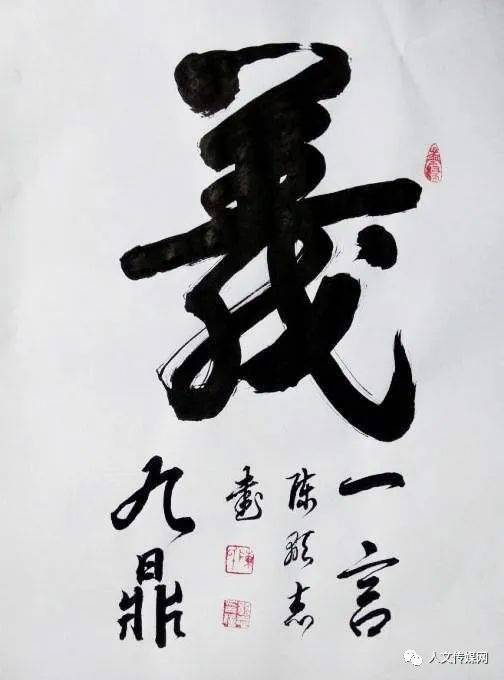 義
一言
九鼎
陈
志
书
人文传媒网